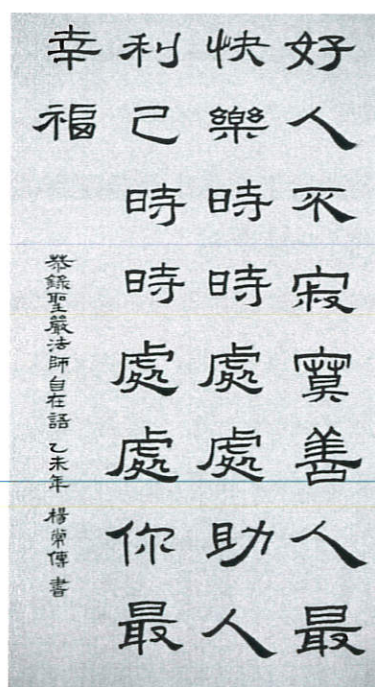 好人不寂寞善人最
快樂時時處處助人
利己時時處處你最
幸福
恭錄聖嚴法師自在語 乙未年 楊崇傳 書